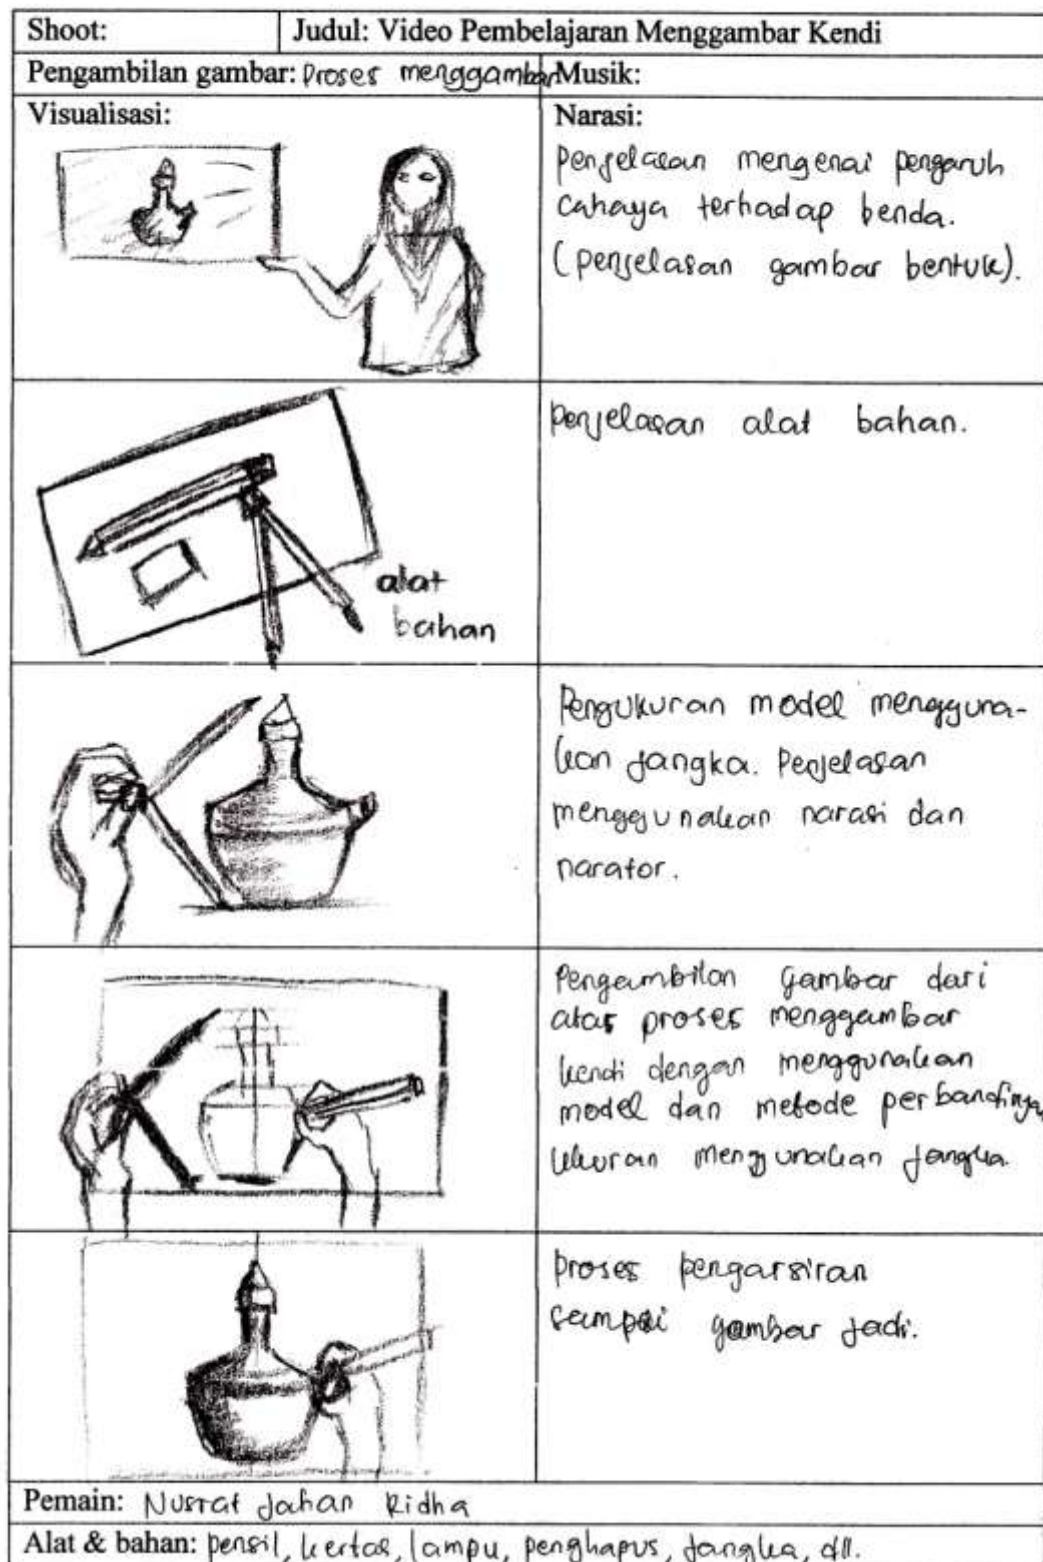 Shoot:
Judul: Video Pembelajaran Menggambar Kendi
Pengambilan gambar: Proses menggambar
Musik:
Visualisasi:
Narasi:
Penjelasan mengenai pengaruh
cahaya terhadap benda.
(penjelasan gambar bentuk).
alat
bahan
Penjelasan alat bahan.
Pengukuran model mengguna-
kan jangka. Penjelasan
menggunakan narasi dan
narator.
Pengambilan gambar dari
atas proses menggambar
kendi dengan menggunakan
model dan metode perbandingan
ukuran menggunakan jangka.
Proses pengarsiran
sampai gambar jadi.
Pemain: Nusrat Jahan Ridha
Alat & bahan: pensil, kertas, lampu, penghapus, jangka, dll.